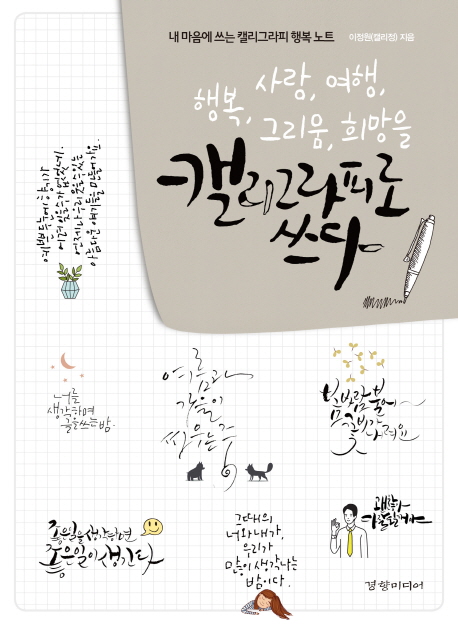 내 마음에 쓰는 캘리그라피 행복 노트 이정원(캘리정) 지음
행복, 사랑, 여행,
그리움, 희망을
캘리그라피로
쓰다
너를
생각하며
글을쓰는밤.
여름과
가을이
싸우는 중
봄바람 불어
꽃비가
나려요
좋은일을 생각하면
좋은일이 생긴다
그때의
너와 내가,
우리가
많이 생각나는
밤이다.
괜찮아
다 잘될거야
경향미디어